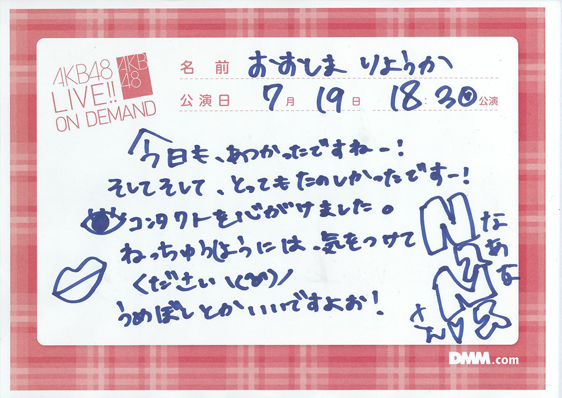 AKB48
LIVE!!
ON DEMAND
AKB
48
名前 おおしま りょうか
公演日 7月 19日 18:30公演
今日も、あつかったですねー!
そしてそして、とってもたのしかったですー!
コンタクトを心がけました。
ねっちゅうしょうには、気をつけて
ください\(^^)/
うめぼしとかいいですよお!
さん
DMM.com